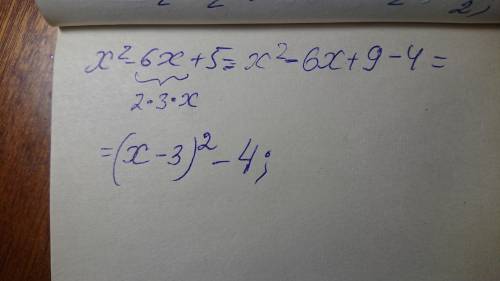 x² - 6x + 5 = x² - 6x + 9 - 4 =
2·3·x
= (x - 3)² - 4;